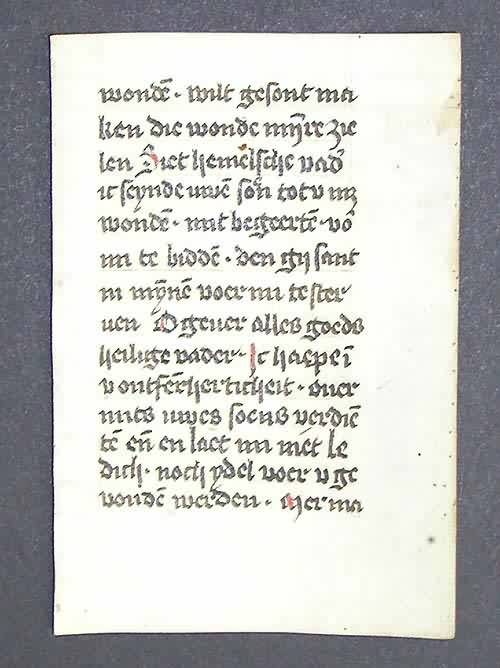 wondē · wilt gesont ma
ken die wonde mijnre zie
len Siet hemelsche vad'
ic seynde uwē son tot v mz
wondē · mit begeertē · vō
mi te biddē · den gij sant
in mijnē voer mi te ster
uen O geuer alles goeds
heilige vader · Ic haepe ī
v ontfērherticheit · ouer
mits uwes soens verdiē
tē eñ en laet mi niet le
dich · noch ydel voer v ge
vondē werden · Mer ma